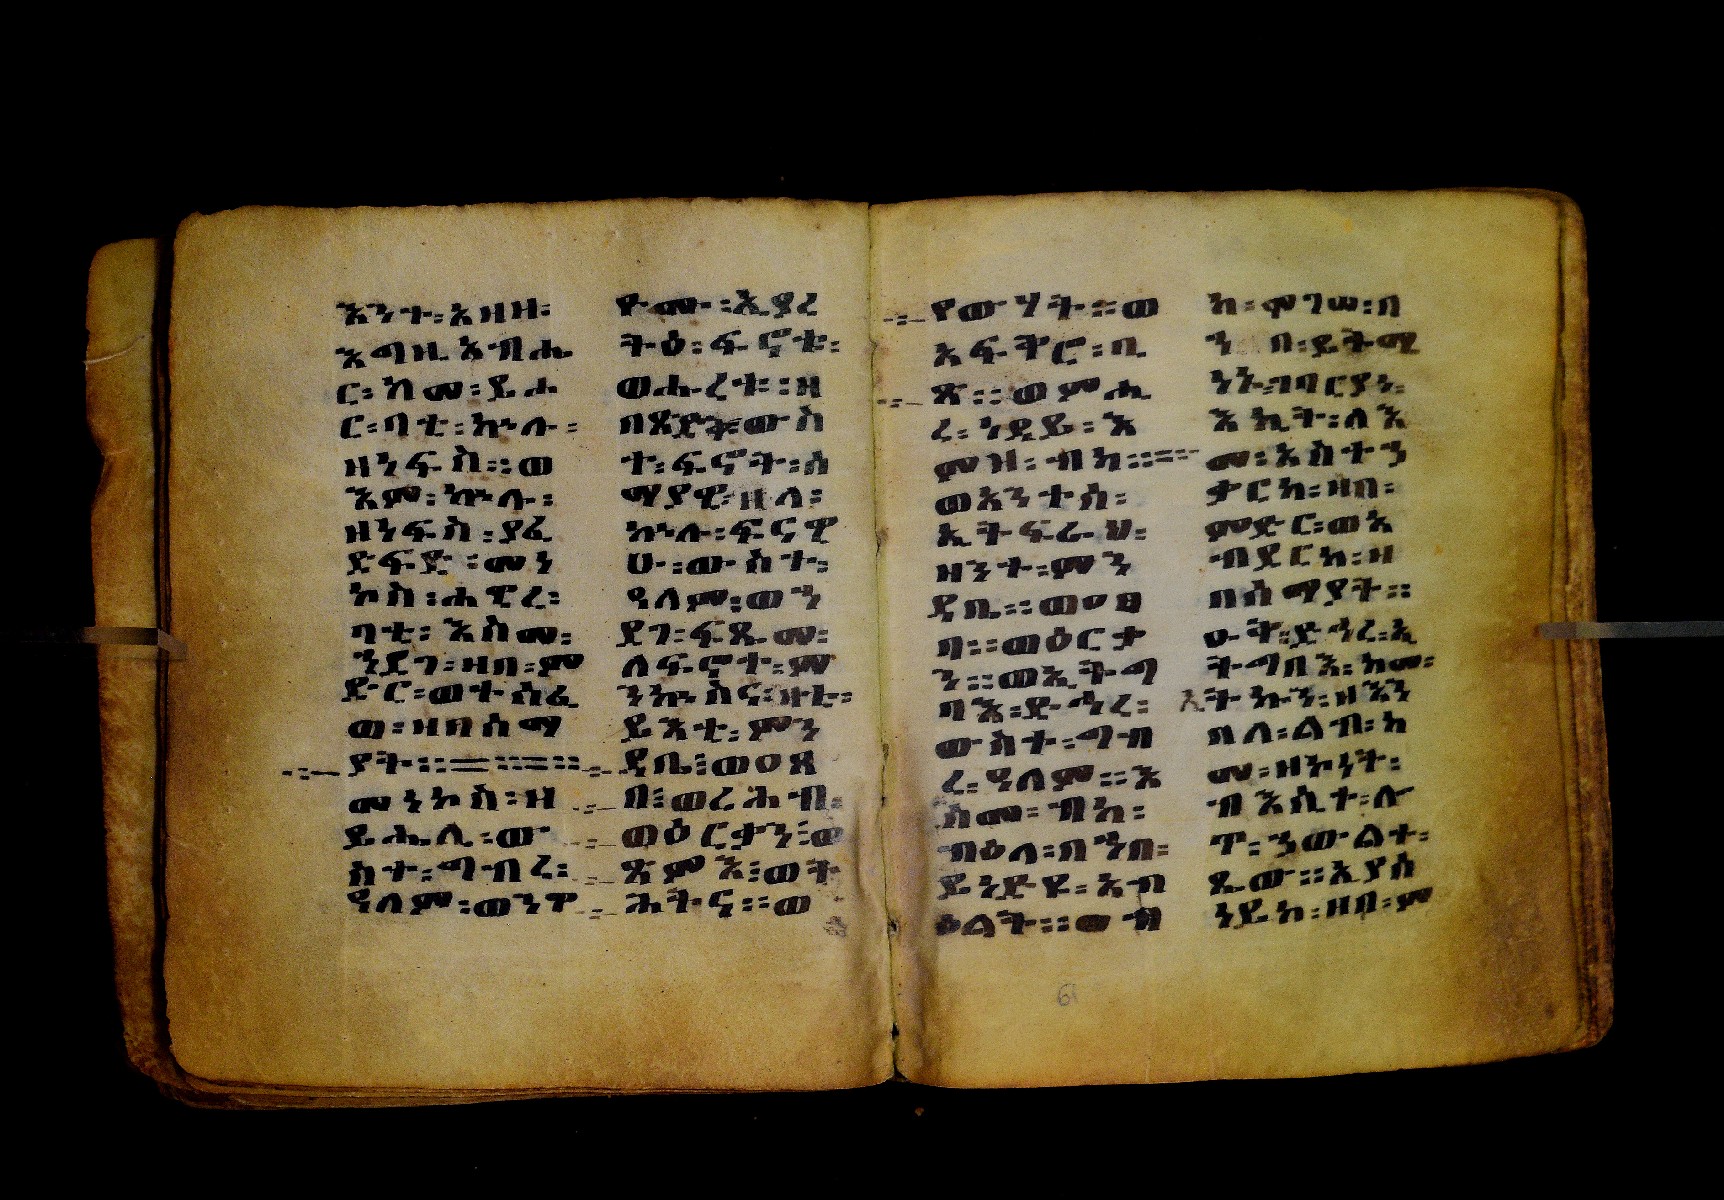 እንተ፡አዘዘ፡
እግዚአብሔ
ር፡ከመ፡ይሐ
ር፡ባቲ፡ኵሉ፡
ዘነፍስ፡፡ወ
እም፡ኵሉ፡
ዘነፍስ፡ያፈ
ድፍድ፡መነ
ኮስ፡ሐዊረ፡
ባቲ፡እስመ፡
ኀደገ፡ዘበ፡ም
ድር፡ወተሰፈ
ወ፡ዘበሰማ
ያት፡፡
መነኮስ፡ዘ
ይሔሊ፡ው
ስተ፡ግብረ፡
ዓለም፡ወንዋ
ዮሙ፡ኢያረ
ትዕ፡ፍኖቱ፡
ወሑረቱ፡ዘ
በጽድቅ፡ውስ
ተ፡ፍኖት፡ሰ
ማያዊ፡ዘለ፡
ኵሉ፡ፍናዊ
ሁ፡ውስተ፡
ዓለም፡ወኀ
ደገ፡ፍጹመ፡
ለፍኖተ፡ም
ንኵስና፡ዘቲ፡
ይእቲ፡ምን
ዳቤ፡ወዐጸ
ባ፡ወረሕብ፡
ወዕርቃን፡ወ
ጽምእ፡ወት
ሕትና፡፡ወ
የውሃት፡፡ወ
አፍቅሮ፡ቢ
ጽ፡፡ወምሒ
ረ፡ነዳይ፡እ
ምዝ፡ብከ፡፡
ወአንተሰ፡
ኢትፍራህ፡
ዘንተ፡ምን
ዳቤ፡፡ወዐፀ
ባ፡፡ወዕርቃ
ን፡፡ወኢትግ
ባእ፡ድኅረ፡
ውስተ፡ግብ
ረ፡ዓለም፡፡እ
ስመ፡ብከ፡
ብዕለ፡በኀበ፡
ይነድዮ፡አብ
ዕልት፡፡ወብ
ከ፡ሞገሠ፡በ
ኀበ፡ይትሜ
ነኑ፡ገባርያነ፡
እኪት፡ለእ
መ፡አስተን
ቃርከ፡ዘበ፡
ምድር፡ወአ
ብደርከ፡ዘ
በሰማያት፡፡
ሁት፡ድኅረ፡ኢ
ትግባእ፡ከመ፡
ኢትኩን፡ዘእን
በለ፡ልብ፡ከ
መ፡ዘኮነት፡
ብእሲተ፡ሎ
ጥ፡ኀውልተ፡
ጼው፡፡እያሰ
ነይከ፡ዘበ፡ም